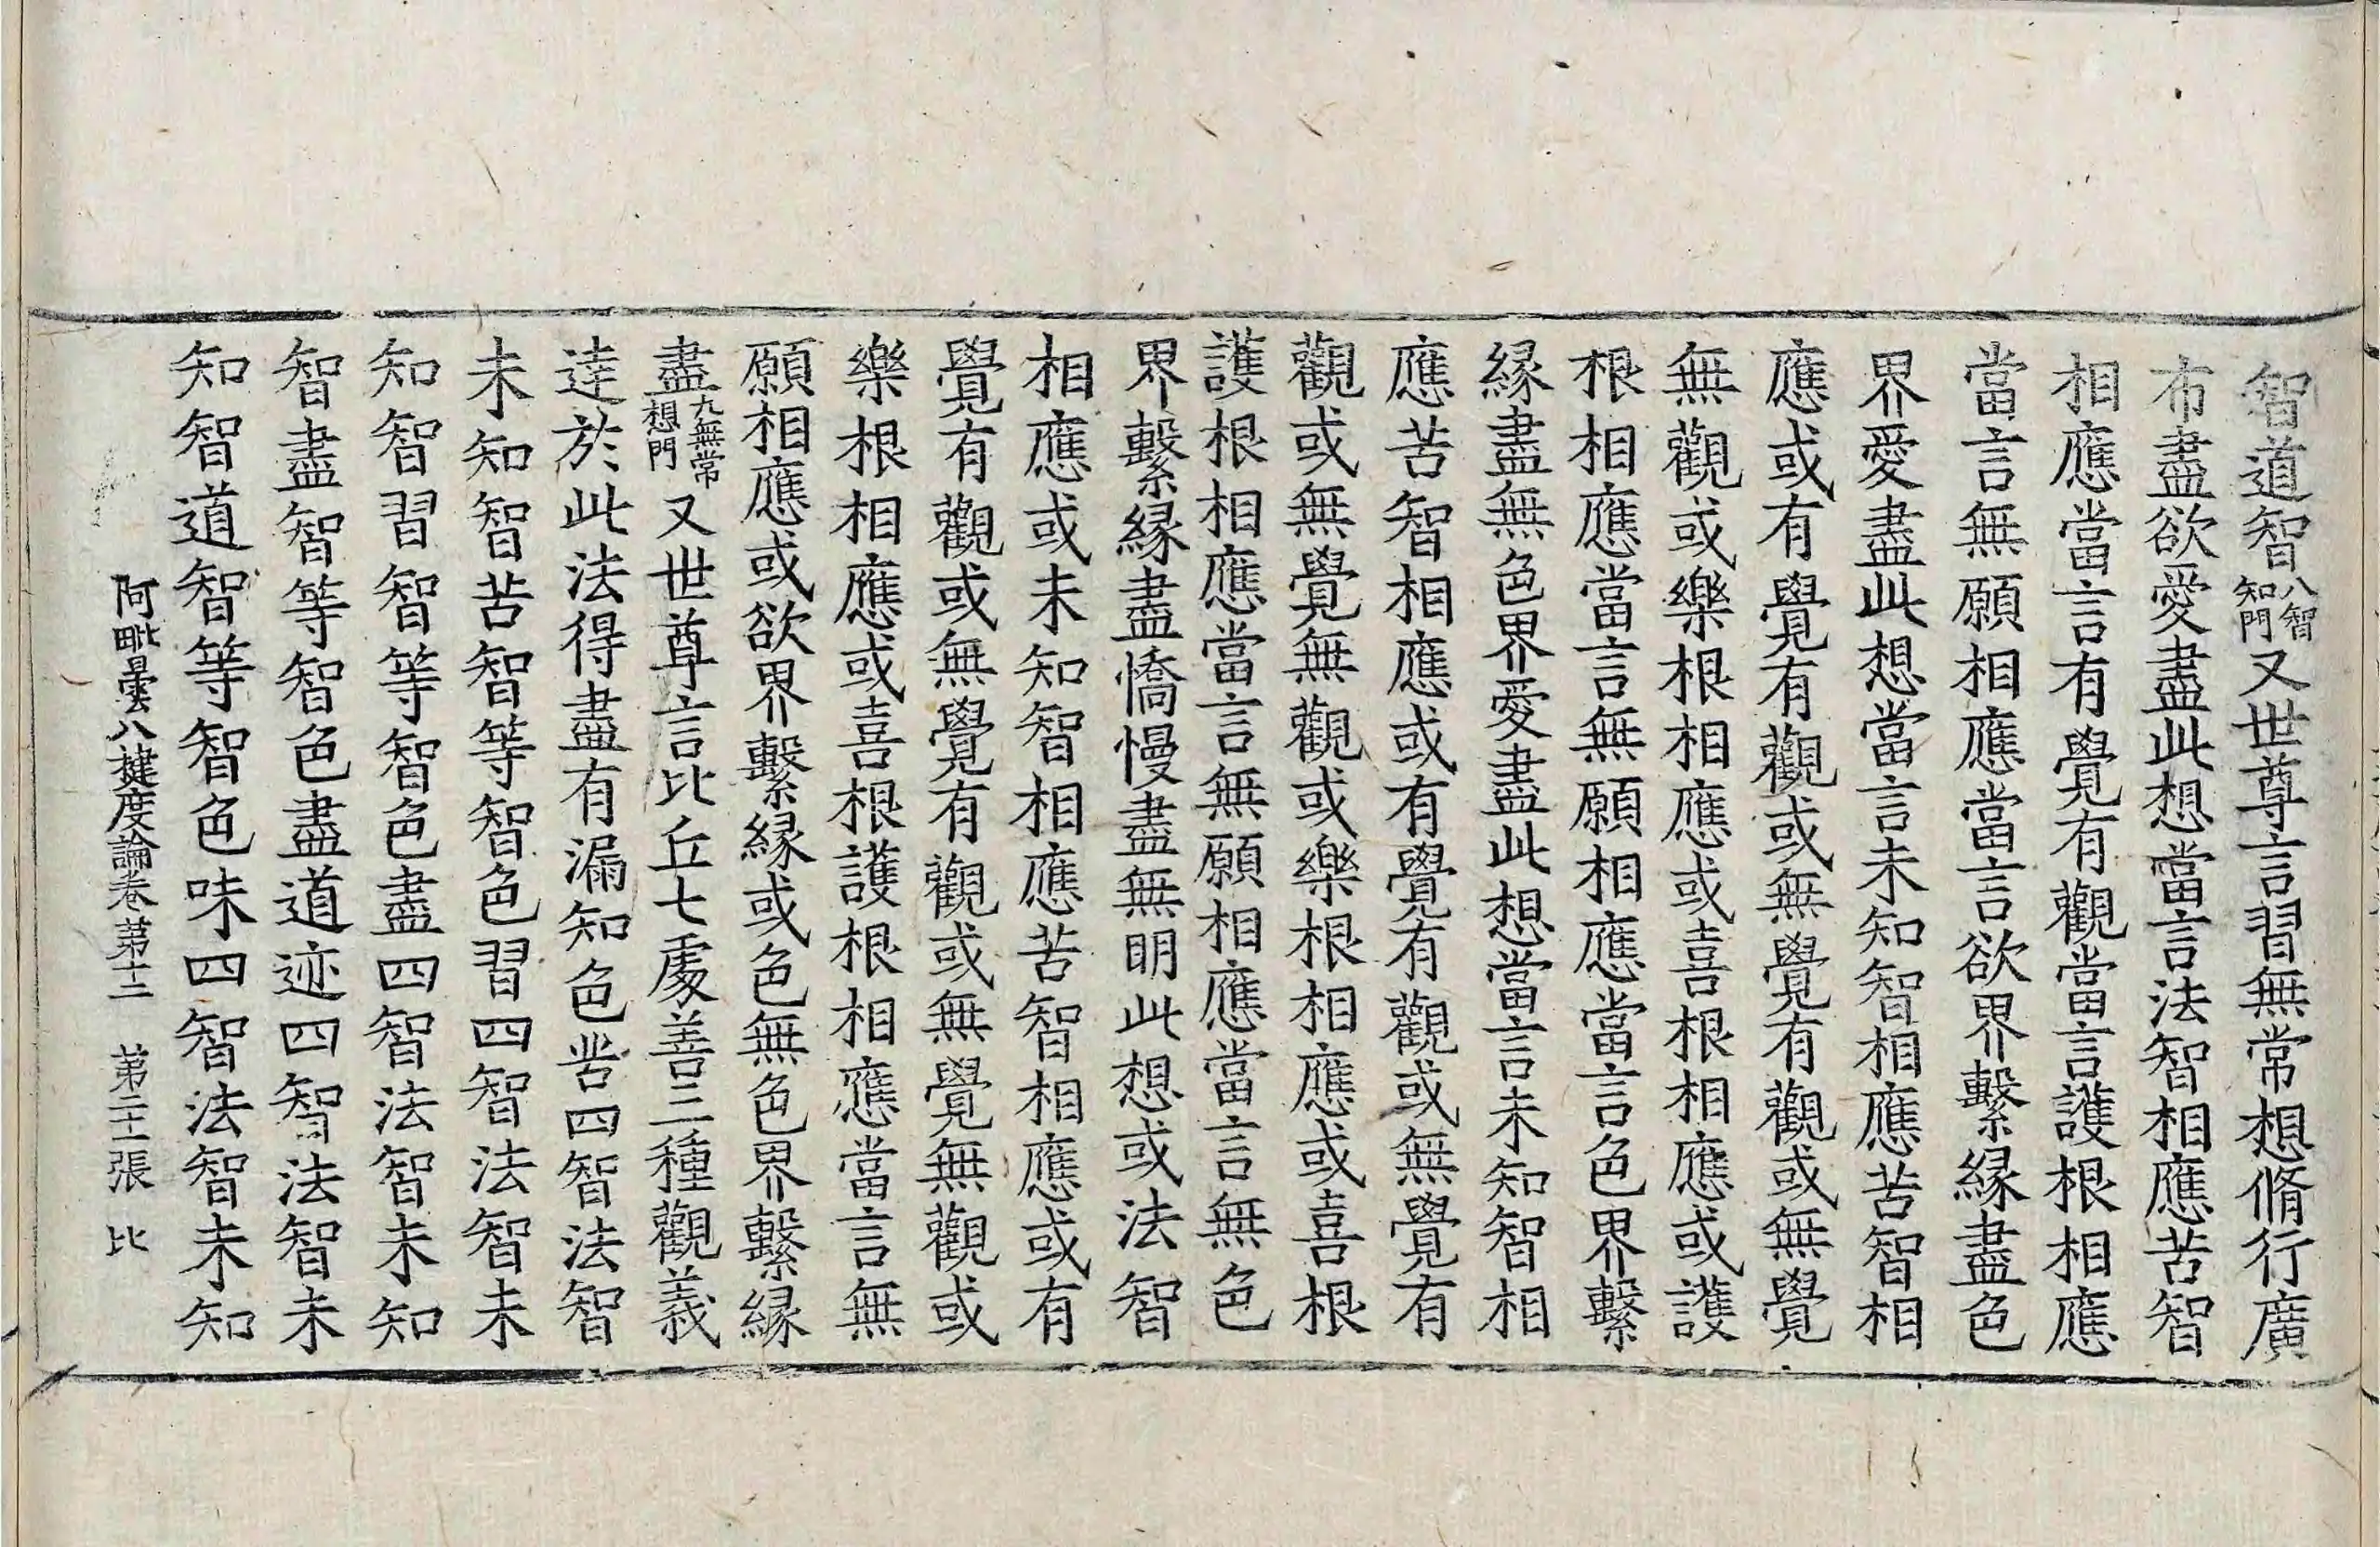 智道智八智知門又世尊言習無常想脩行廣
布盡欲愛盡此想當言法智相應苦智
相應當言有覺有觀當言護根相應
當言無願相應當言欲界繫緣盡色
界愛盡此想當言未知智相應苦智相
應或有覺有觀或無覺有觀或無覺
無觀或樂根相應或喜根相應或護
根相應當言無願相應當言色界繫
緣盡無色界愛盡此想當言未知智相
應苦智相應或有覺有觀或無覺有
觀或無覺無觀或樂根相應或喜根
護根相應當言無願相應當言無色
界繫緣盡憍慢盡無明此想或法智
相應或未知智相應苦智相應或有
覺有觀或無覺有觀或無覺無觀或
樂根相應或喜根護根相應當言無
願相應或欲界繫緣或色無色界繫緣
盡九無常想門又世尊言比丘七處善三種觀義
逹於此法得盡有漏知色苦四智法智
未知智苦智等智色習四智法智未
知智習智等智色盡四智法智未知
智盡智等智色盡道迹四智法智未
知智道智等智色味四智法智未知
阿毗曇八揵度論卷第十二 第二十一張 比